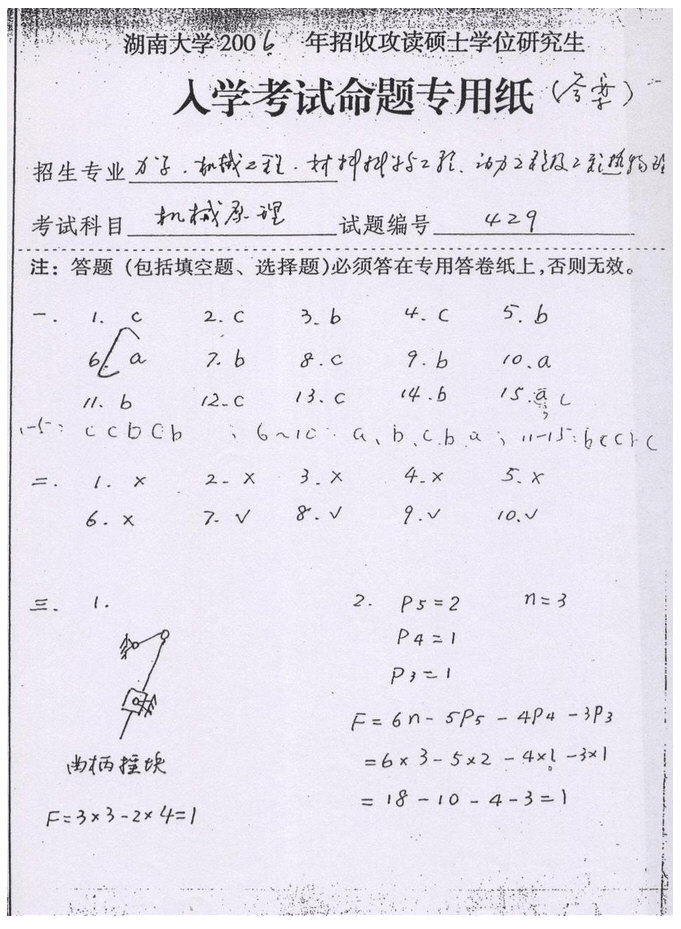 湖南大学2006 年招收攻读硕士学位研究生
入学考试命题专用纸(答案)
招生专业 力学.机械工程.材料科学与工程、动力工程及工程热物理
考试科目 机械原理 试题编号 429
注: 答题 (包括填空题、选择题)必须答在专用答卷纸上,否则无效。
一. 1. c 2. c 3. b 4. c 5. b
6. a 7. b 8. c 9. b 10. a
11. b 12. c 13. c 14. b 15. a c
1-5: c c b c b ; 6~10: a、b、c、b、a ; 11-15: b c c b c
二. 1. × 2. × 3. × 4. × 5. ×
6. × 7. √ 8. √ 9. √ 10. √
三. 1. 2. P5=2 n=3
P4=1
P3=1
F=6n-5P5-4P4-3P3
=6×3-5×2-4×1-3×1
曲柄摇块
=18-10-4-3=1
F=3×3-2×4=1